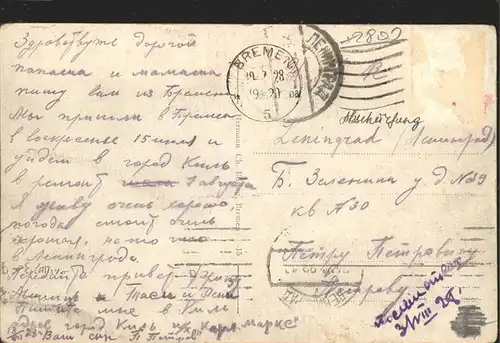 Здравствуте дорогой
папаша и мамаша
пишу вам из Бремена
Мы пришли в Бремен
в воскресенье 15 июля и
уйдем в город Киль
в ремонт 1 августа
Я живу очень хорошо,
погода стоит очень
хорошая, не то что
в Ленинграде.
Передайте привет
и Тасе и
Пишите мне в Киль
Адрес город Киль п/х "Карл Маркс"
Ваш сын П Петров
BREMEN
5
ЛЕНИНГРАД
2802
Leningrad (Ленинград)
Б. Зеленина у. д № 19
кв № 30
Петру Петровичу
Петрову
3/VIII 28